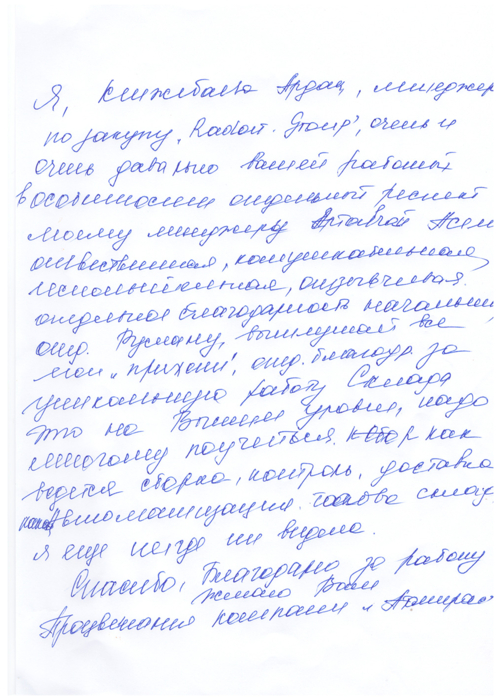 Я, Ардак, менеджер
по закупу "Radost Group", очень и
очень довольно вашей работой
в особенности отдельный респект
моему менеджеру Асем
отвественная, коммуникабельная,
исполнительная, отзывчивая.
отдельное благодарность начальни
отд. Руслану, выслушал все
мои "прихоти", отд. благодар. за
уникальную работу Склада
это на Высшем уровне, надо
многому поучиться. как
ведется сборка, контроль, доставка
Автоматизация. склад
я еще нигде ни видела.
Спасибо, Благодарю за работу
желаю Вам
Процветания компании